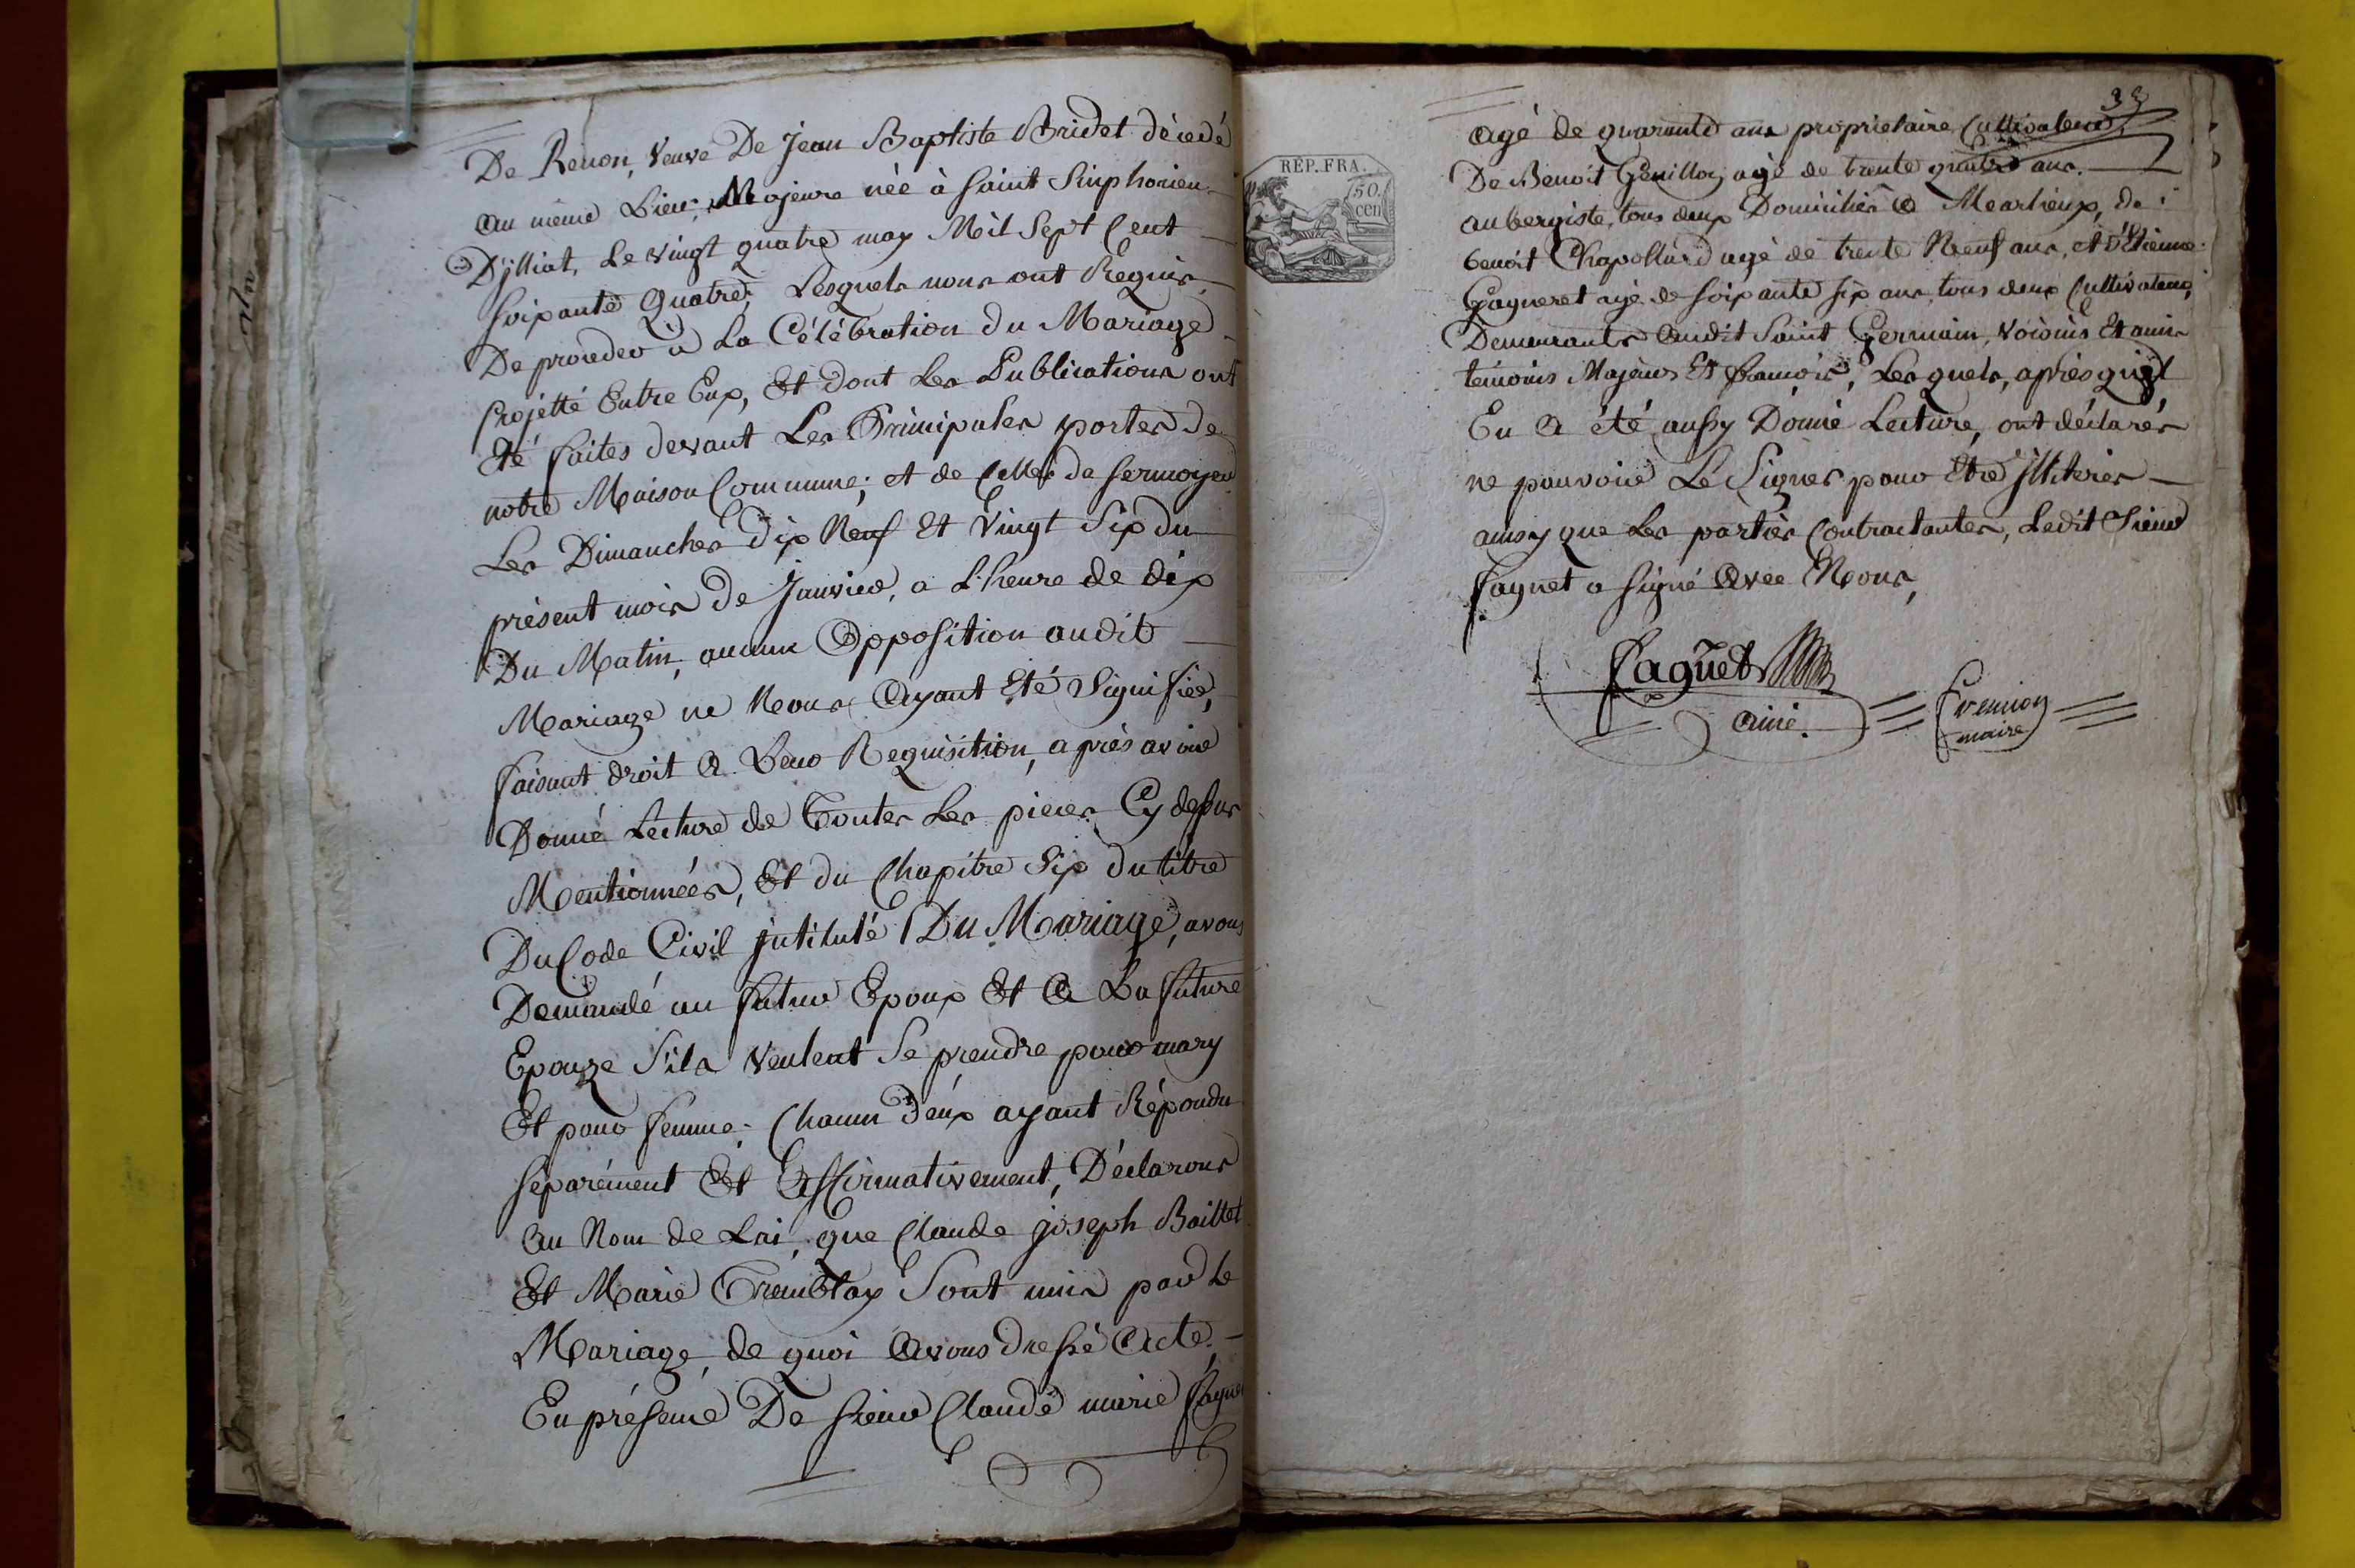 De Renon, Veuve De Jean Baptiste Bridet décedé
au même Lieu; Majeure née à Saint Sinphorien
D'jlliat, Le vingt quatre may Mil Sept Cent
Soixante Quatre; Lesquels nous ont Requis,
De proceder à La Célébration du Mariage
Projetté Entre Eux, Et dont Les Publications ont
Eté faites devant Les Principales portes de
notre Maison Commune; et de Celles de Sermoyer
Les Dimanches Dix Neuf Et Vingt Six du
présent mois de Janvier, a L'heure de dix
Du Matin, aucune Opposition audit
Mariage ne Nous Ayant Eté Signifiée,
faisant droit A Leur Requisition, après avoir
Donné Lecture de Toutes Les pieces Cy dessus
Mentionnées, Et du Chapitre Six du titre
Du Code Civil jntitulé Du Mariage, avons
Demandé au futur Epoux Et A La future
Epouze S'ils Veulent Se prendre pour mary
Et pour femme; Chacun d'eux ayant Répondu
Séparément Et Affirmativement, Déclarons
au Nom de Loi, que Claude joseph Baillet
Et Marie Tremblay Sont unis par Le
Mariage, de quoi Avons dressé Acte,
En présence De Sieur Claude marie faguet
33
agé de quarante ans propriétaire Cultivateur,
De Benoit Genillon agé de trente quatre ans.
aubergiste, tous deux Domiciliés a Marlieux, de
benoit Chapolland agé de trente Neuf ans, et d'Etienne
Gagneret agé de Soixante Six ans, tous deux Cultivateurs,
Demeurants audit Saint Germain, Voisins Et amis
témoins Majeurs Et français, Lesquels, après qu'jl
En A été aussy Donné Lecture, ont déclarés
ne pouvoir Le Signer pour Etre jlliterés
ainsy que Les parties Contractantes, Ledit Sieur
faguet a signé Avec Nous,
RÉP. FRA.
50
cen
faguet
ainé.
maire